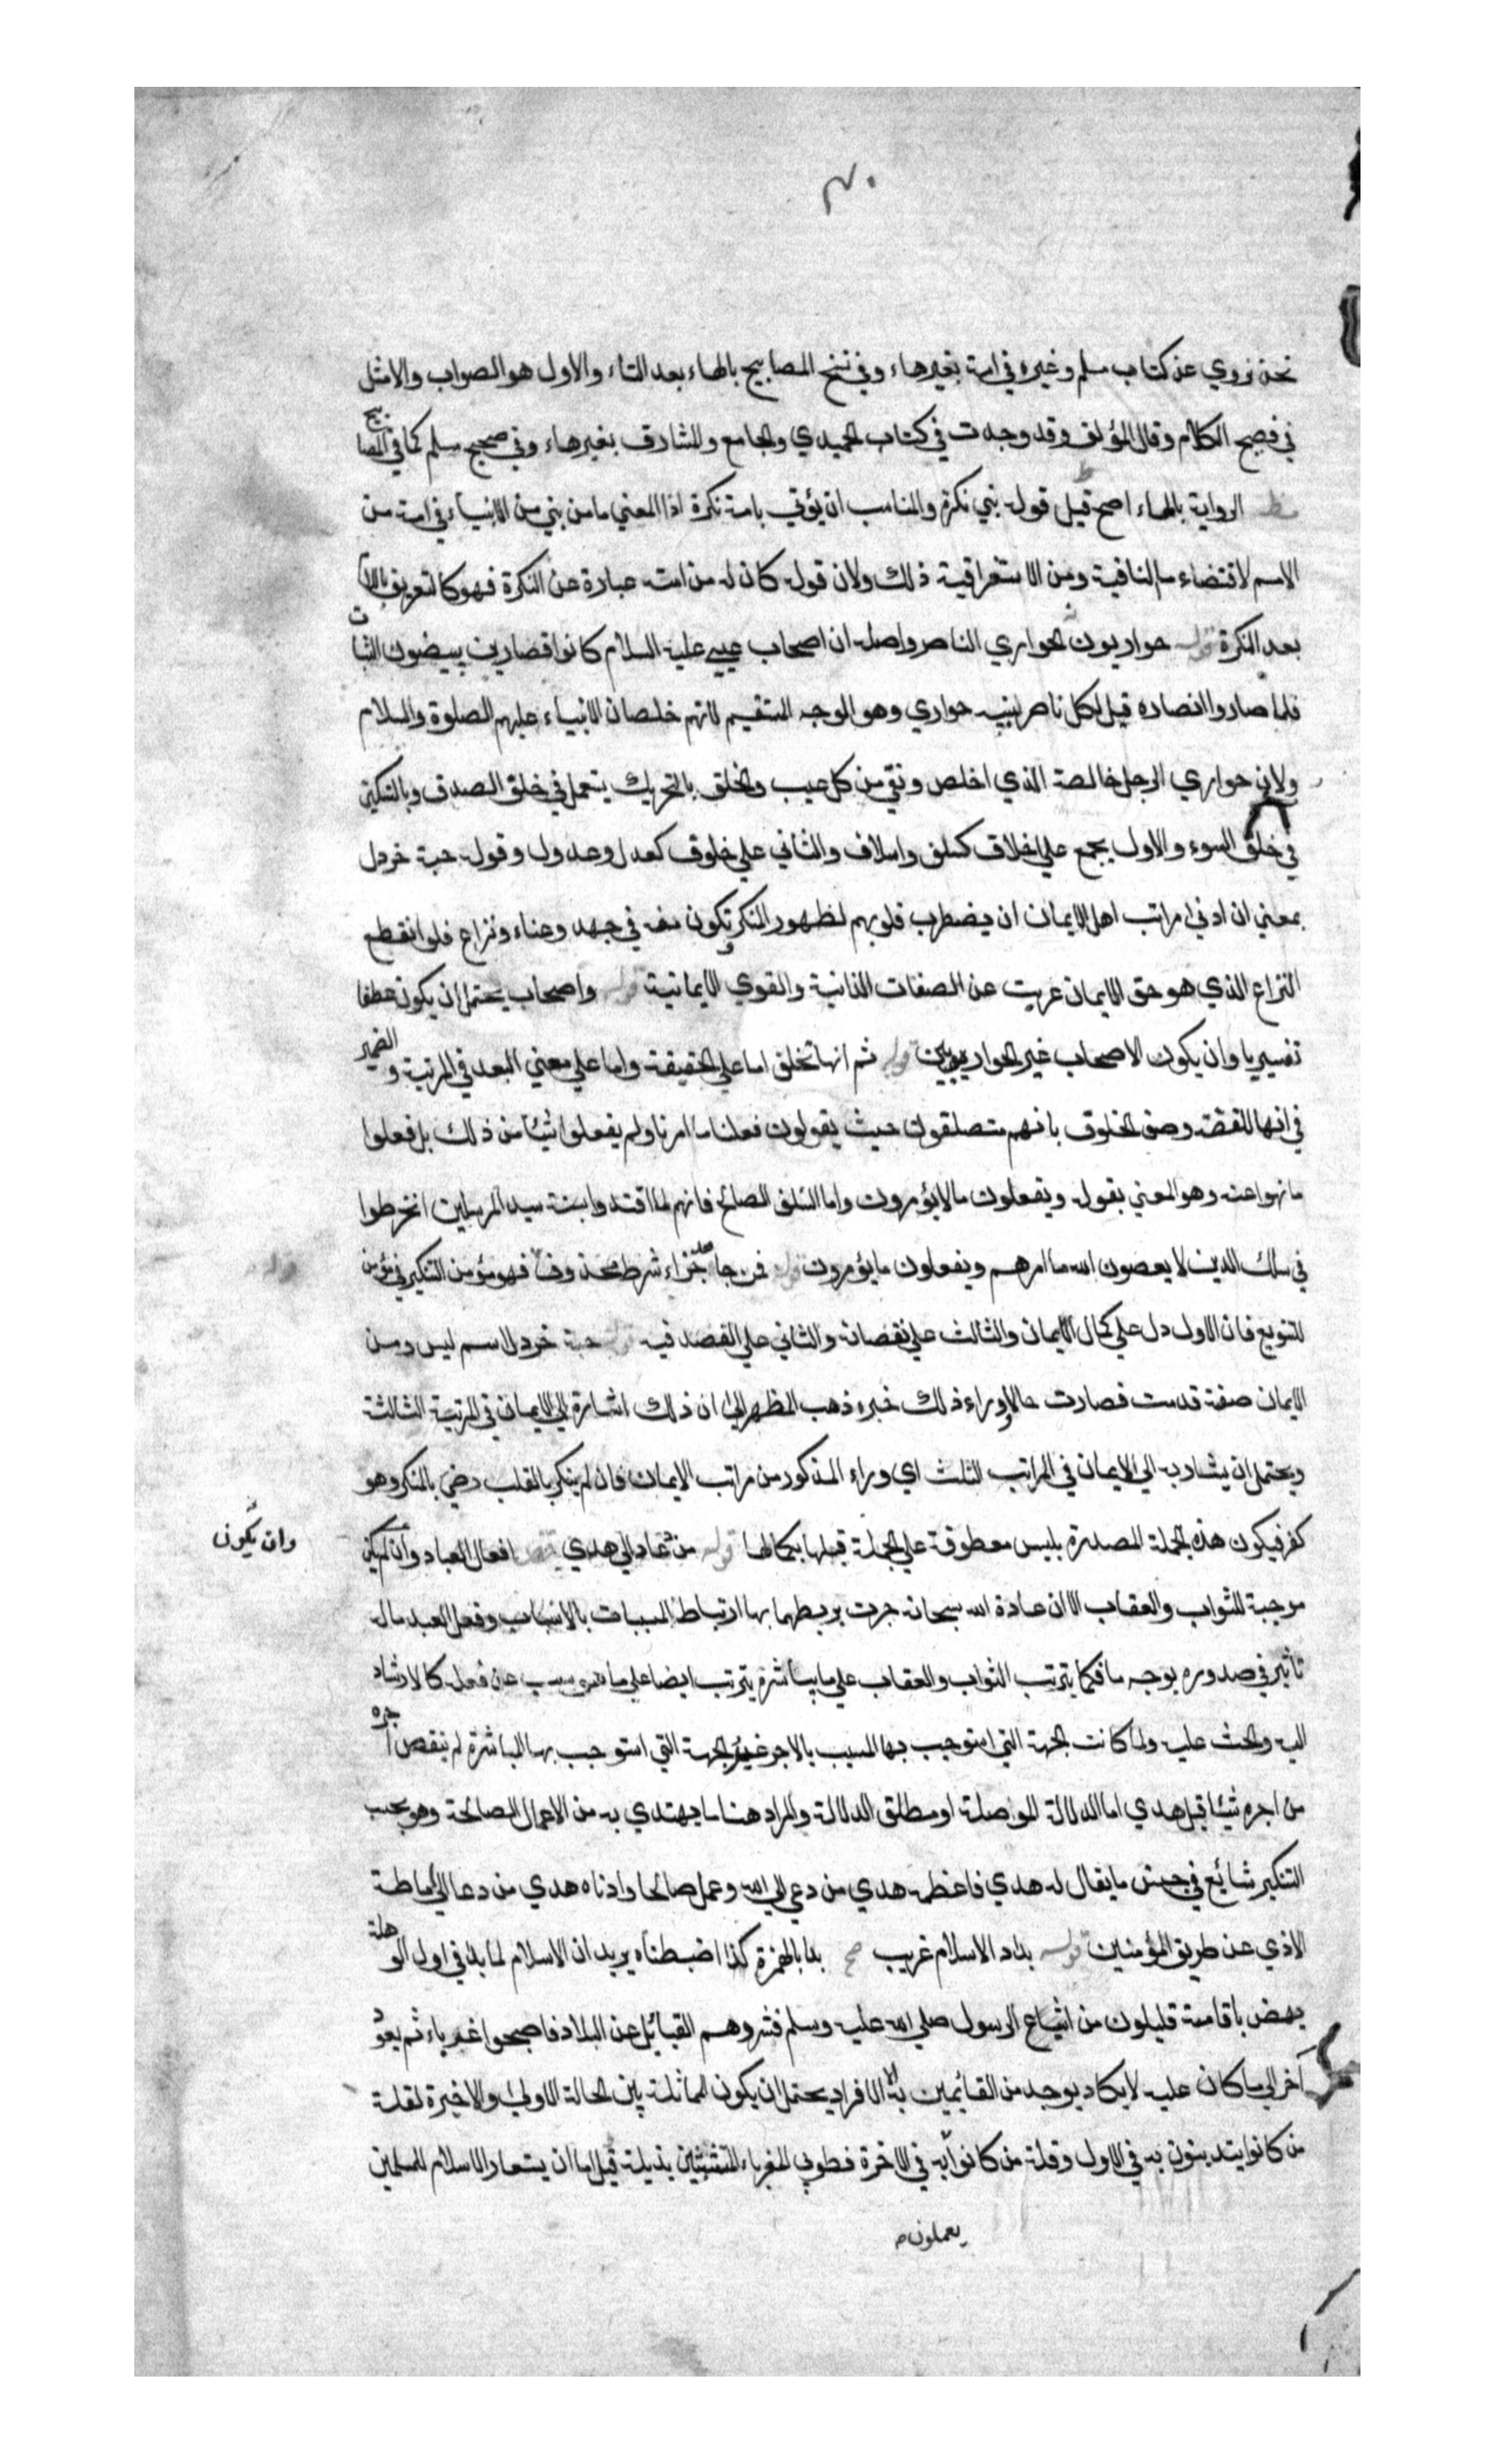 نحن نروي عن كتاب مسلم وغيره في امة بغير هاء وفي نسخ المصابيح بالهاء بعد التاء والاول هو الصواب والامثل
في فصيح الكلام وقال المؤلف وقد وجدت في كتاب الحميدي والجامع والمشارق بغير هاء وفي صحيح مسلم كما في المصابيح
مظ الرواية بالهاء اصح قيل قوله نبي نكرة والمناسب ان يؤتي بامة نكرة اذ المعني ما من نبي من الانبياء في امة من
الامم لاقتضاء ما النافية ومن الاستغراقية ذلك ولان قوله كان له من امته عبادة عن النكرة فهو كالتعريف باللام
بعد النكرة قوله حواريون الحواري الناصر واصله ان اصحاب عيسي عليه السلام كانوا قصارين يبيضون الثياب
فلما صاروا انصاره قيل لكل ناصر نبيه حواري وهو الوجه المستقيم لانهم خلصان الانبياء عليهم الصلوة والسلام
ولان حواري الرجل خالصة الذي اخلص ونقي من كل عيب والخلق بالتحريك يستعمل في خلق الصدق وبالتسكين
في خلق السوء والاول يجمع علي اخلاف كسلف واسلاف والثاني علي خلوف كعدل وعدول وقوله حبة خردل
بمعني ان ادني مراتب اهل الايمان ان يضطرب قلوبهم لظهور المنكر وتكون منه في جهد وعناء ونزاع فلو انقطع
النزاع الذي هو حق الايمان عريت عن الصفات الذاتية والقوي الايمانية قوله واصحاب يحتمل ان يكون عطفا
تفسيريا وان يكون الاصحاب غير الحواريين قوله ثم انها تخلف اما علي الحقيقة واما علي معني البعد في المرتبة والضمير
في انها للقصة وصف الخلوف بانهم متصلفون حيث يقولون فعلنا ما امرنا ولم يفعلوا شيئا من ذلك بل فعلوا
ما نهوا عنه وهو المعني بقوله ويفعلون ما لا يؤمرون واما السلف الصالح فانهم لما اقتدوا بسنة سيد المرسلين انخرطوا
في سلك الذين لا يعصون الله ما امرهم ويفعلون ما يؤمرون قوله فمن جاهد جزاء شرط محذوف فهو مؤمن التنكير في مؤمن
للتنويع فان الاول دل علي كمال الايمان والثالث علي نقصانه والثاني علي القصد فيه قوله حبة خردل اسم ليس ومن
الايمان صفة قدمت فصارت حالا ووراء ذلك خبره ذهب المظهر الي ان ذلك اشارة الي الايمان في المرتبة الثالثة
ويحتمل ان يشار به الي الايمان في المراتب الثلث اي وراء المذكور من مراتب الايمان فان لم ينكر بالقلب رضي بالمنكر وهو
كفر فيكون هذه الجملة المصدرة بليس معطوفة علي الجملة قبلها بكمالها قوله من دعا الي هدي افعال العباد وان لم يكن
وان يكون
موجبة للثواب والعقاب الا ان عادة الله سبحانه جرت بربطهما بها ارتباط المسببات بالاسباب وفعل العبد ما له
تاثير في صدوره بوجه ما فكما يترتب الثواب والعقاب علي ما يباشره يترتب ايضا علي ما هو مسبب عن فعله كالارشاد
اليه والحث عليه ولما كانت الجهة التي استوجب بها المسبب بالاجر غير الجهة التي استوجب بها المباشرة لم ينقص اجره
من اجره شيئا قيل هدي اما الدلالة الموصلة او مطلق الدلالة والمراد هنا ما يهتدي به من الاعمال الصالحة وهو بحسب
التنكير شائع في جنس ما يقال له هدي فاعظمه هدي من دعي الي الله وعمل صالحا وادناه هدي من دعا الي اماطة
الاذي عن طريق المؤمنين قوله بداء الاسلام غريب بدا بالهمزة كذا ضبطناه يريد ان الاسلام لما بدا في اول الوهلة
نهض باقامته قليلون من اشياع الرسول صلي الله عليه وسلم فشردهم القبائل عن البلاد فاصبحوا غرباء ثم يعود
آخر الي ما كان عليه لا يكاد يوجد من القائمين به الا الافراد يحتمل ان يكون المماثلة بين الحالة الاولي والاخيرة لقلة
من كانوا يتدينون به في الاول وقلة من كانوا به في الآخرة فطوبي للغرباء المتشبثين بذيله قيل اما ان يستعار الاسلام للمسلمين
يعملون